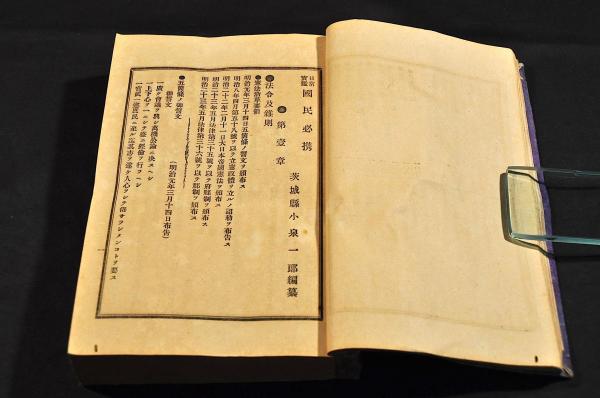 日常寶鑑 國民必携
茨城縣 小泉一郎編纂
第壹章
法令及雜則
●憲法治草畧
明治元年三月十四日五箇條ノ誓文ヲ頒布ス
明治八年四月第五十八號ヲ以テ立憲政體ヲ立ルノ詔勅ヲ布告ス
明治二十二年二月十一日大日本帝國憲法ヲ頒布ス
明治二十三年五月法律第三十五號ヲ以テ府縣制ヲ頒布ス
明治二十三年五月法律第三十六號ヲ以テ郡制ヲ頒布ス
●五箇條ノ御誓文
御誓文 (明治元年三月十四日布告)
一廣ク會議ヲ興シ萬機公論ニ決スヘシ
一上下心ヲ一ニシテ盛ニ經綸ヲ行フヘシ
一官武一途庶民ニ至ル迄其志ヲ遂ケ人心ヲシテ倦サラシメンコトヲ要ス